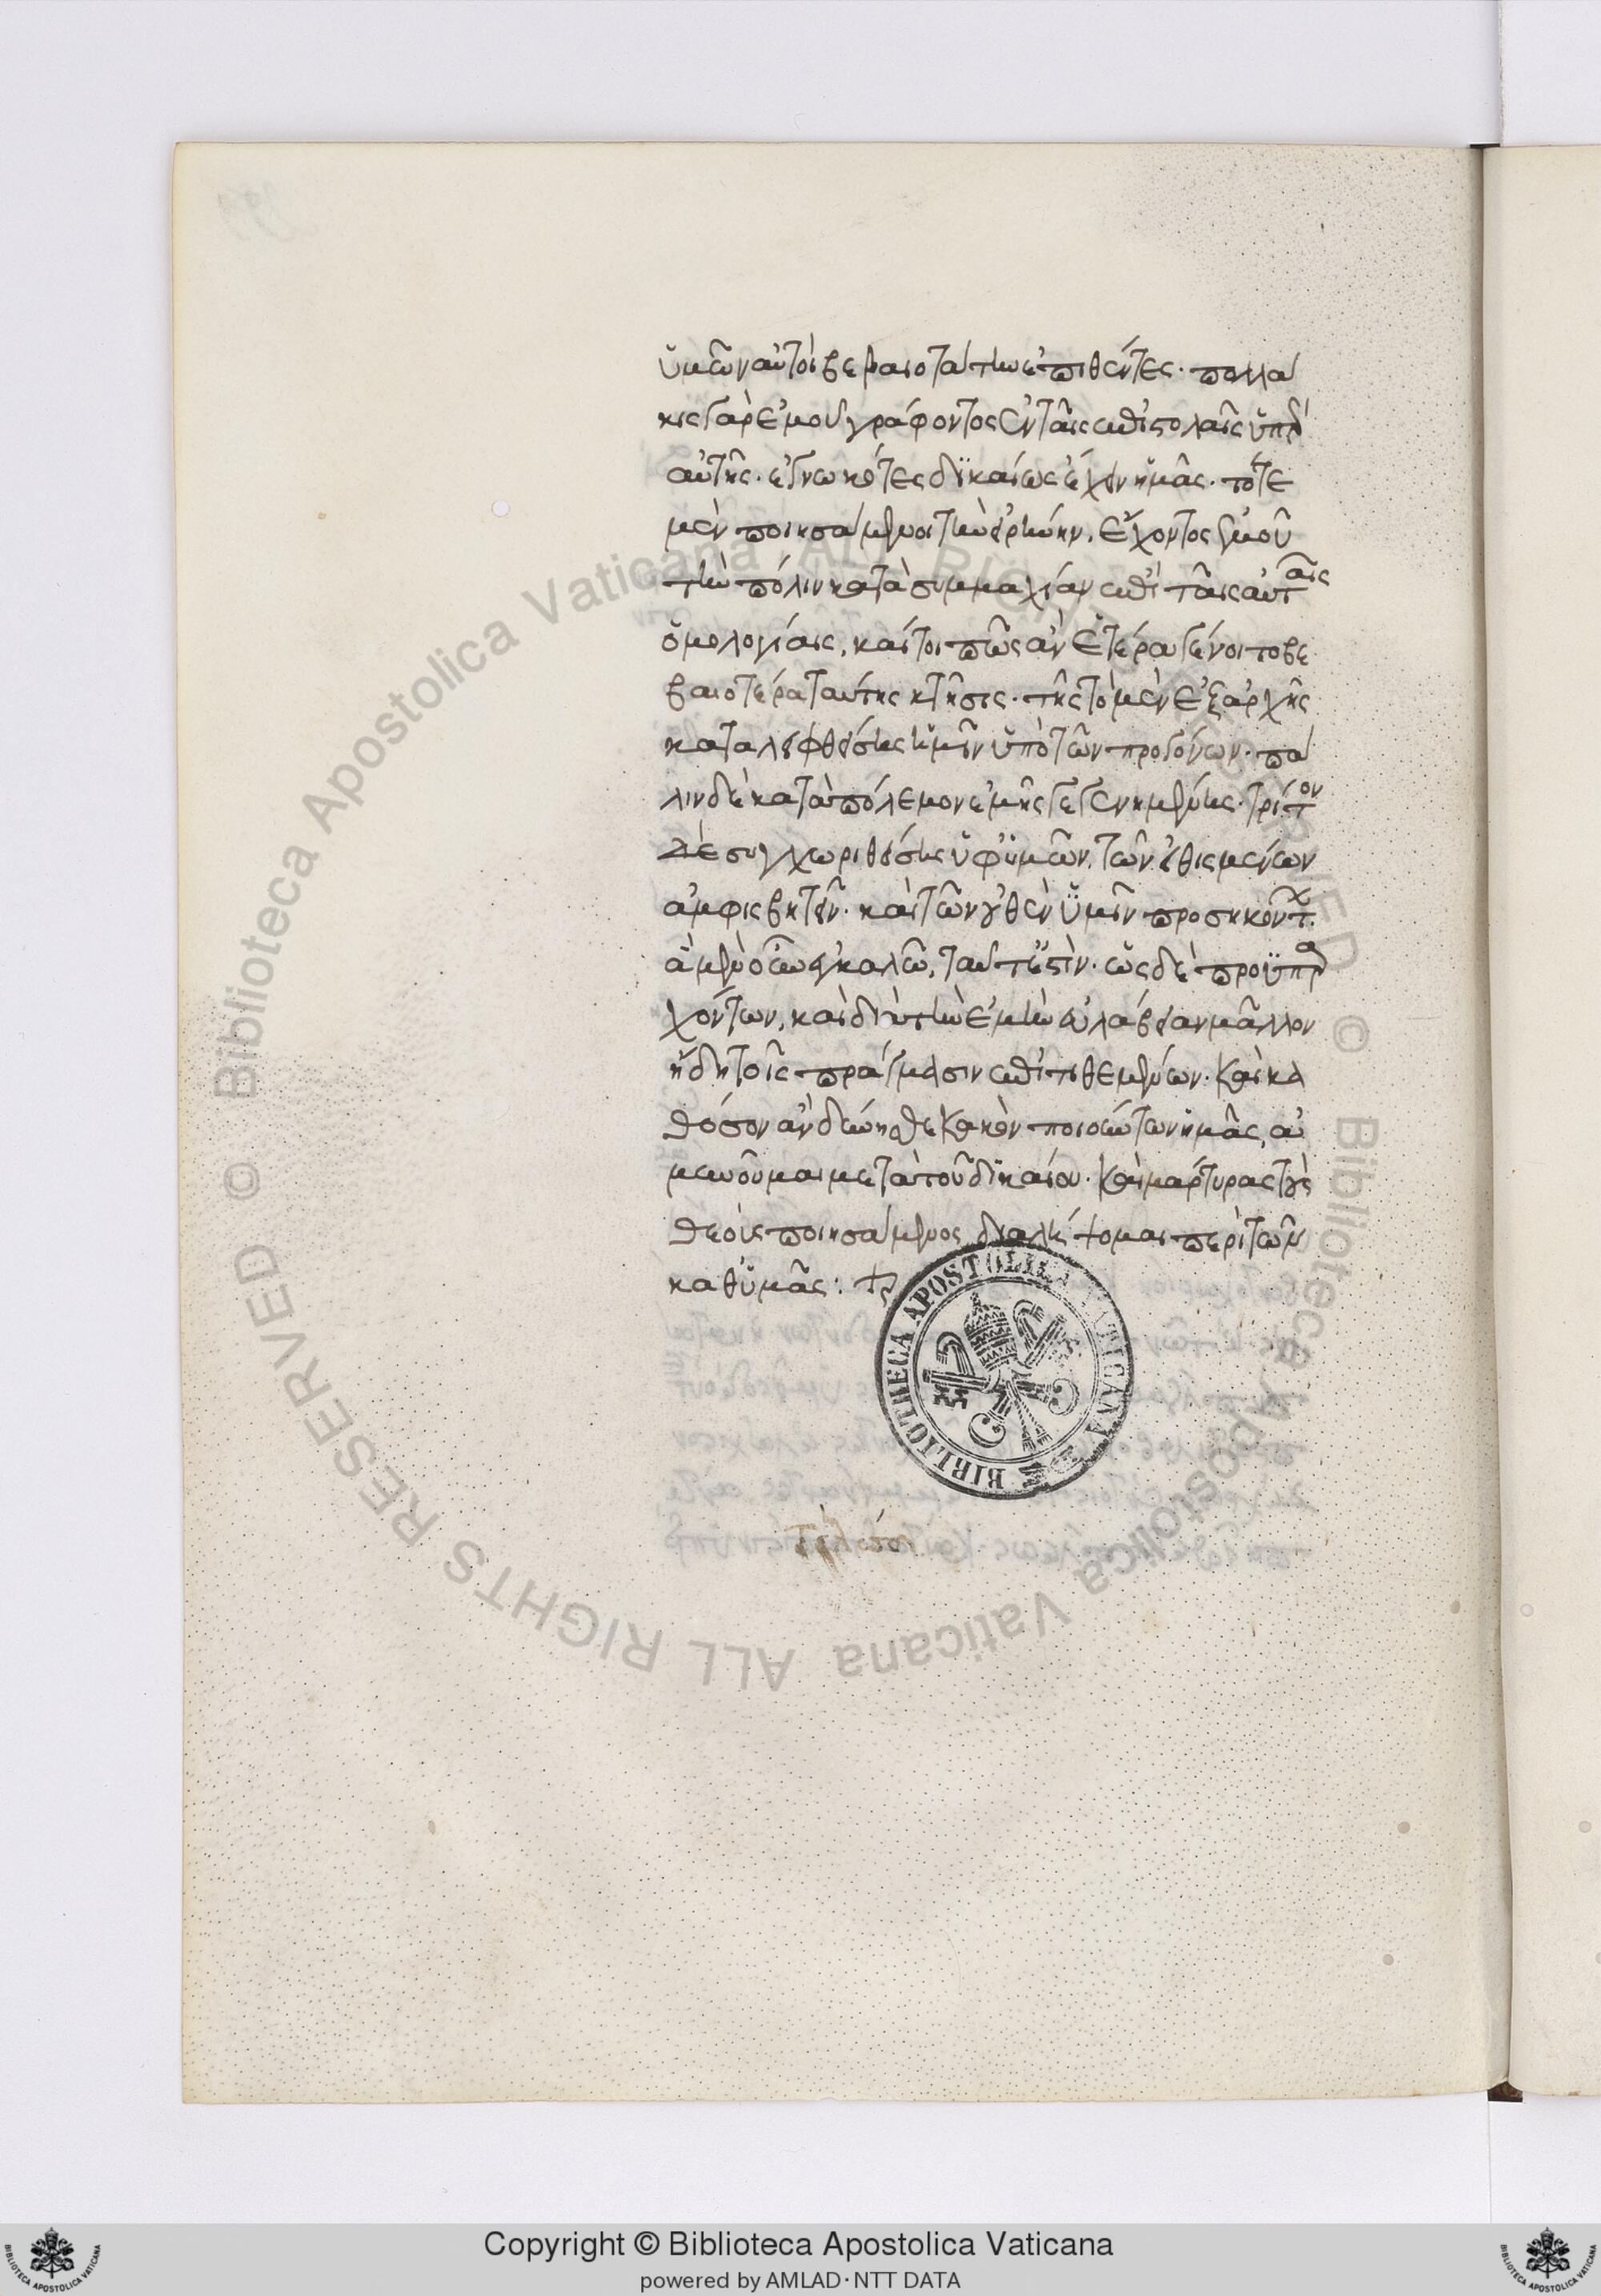 ὑμῶν αὐτοὶ βεβαιοτάτην ἐπιθέντες. πολλά
κις γὰρ ἐμοῦ γράφοντος ἐν ταῖς ἐπιστολαῖς ὑπὲρ
αὐτῆς. ἐγνωκότες δικαίως ἔχειν ἡμᾶς. τότε
μὲν ποιησάμενοι τὴν εἰρήνην, ἔχοντος ἐμοῦ
τὴν πόλιν κατὰ συμμαχίαν ἐπὶ ταῖς αὐταῖς
ὁμολογίαις, καίτοι πῶς ἂν ἑτέρα γένοιτο βε
βαιοτέρα ταύτης κτῆσις. τῆς τὸ μὲν ἐξ ἀρχῆς
καταλειφθείσης ἡμῖν ὑπὸ τῶν προγόνων. πά
λιν δὲ κατὰ πόλεμον ἐμῆς γεγενημένης. τρίτον
δὲ συγχωριθείσης ὑφ' ὑμῶν, τῶν εἰθισμένων
ἀμφισβητεῖν. καὶ τῶν οὐθὲν ὑμῖν προσηκόντων.
ἃ μὲν οὖν ἐγκαλῶ, ταῦτ' ἐστίν. ὡς δὲ προϋπαρ
χόντων, καὶ διὰ τὴν ἐμὴν εὐλάβειαν μᾶλλον
ἤδη τοῖς πράγμασιν ἐπιτιθεμένων. καὶ κα
θόσον ἂν δύνησθε κακὸν ποιούντων ἡμᾶς, ἀ
μυνοῦμαι μετὰ τοῦ δικαίου. καὶ μάρτυρας τοὺς
θεοὺς ποιησάμενος, διαλήψομαι περὶ τῶν
καθ' ὑμᾶς:
BIBLIOTHECA APOSTOLICA VATICANA
© Biblioteca Apostolica Vaticana ALL RIGHTS RESERVED © Biblioteca Apostolica Vaticana ALL RIGHTS RESERVED
Copyright © Biblioteca Apostolica Vaticana
powered by AMLAD·NTT DATA